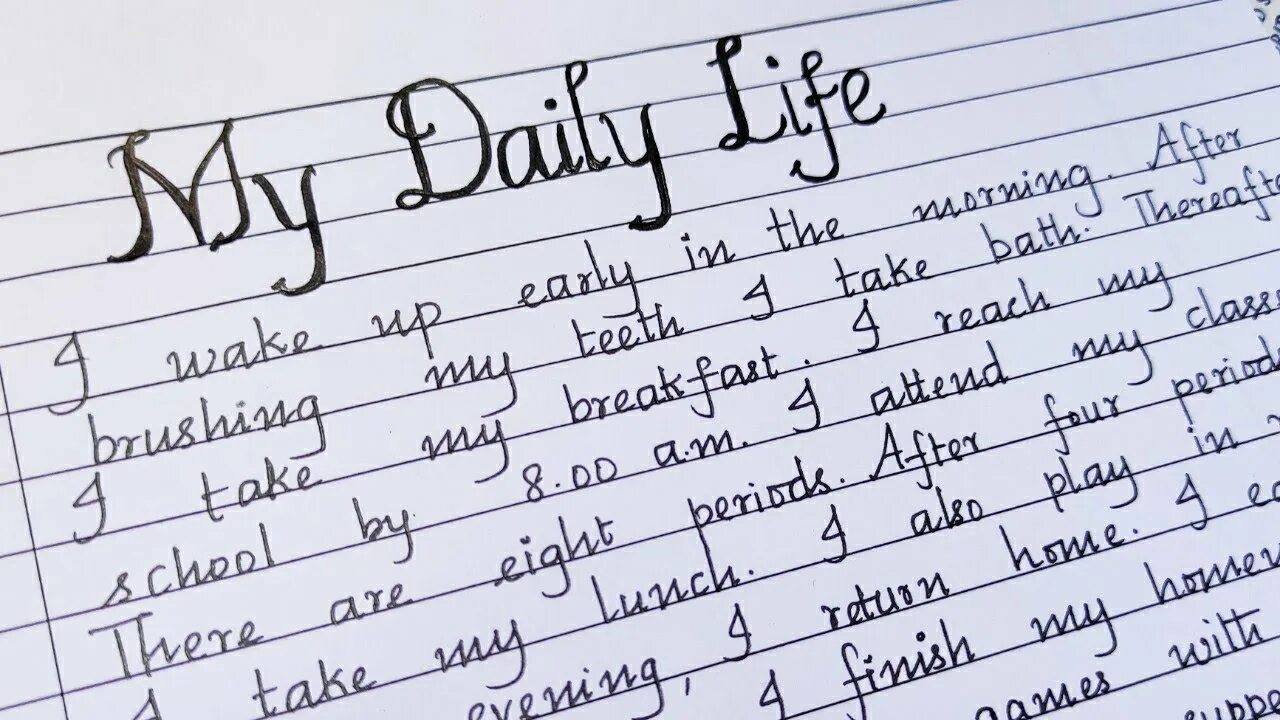 My Daily Life
I wake up early in the morning. After
brushing my teeth I take bath. Thereafte
I take my breakfast. I reach my
school by 8.00 a.m. I attend my class
There are eight periods. After four periods
I take my lunch. I also play in
evening, I return home. I ea
I finish my homew
games with
suppe